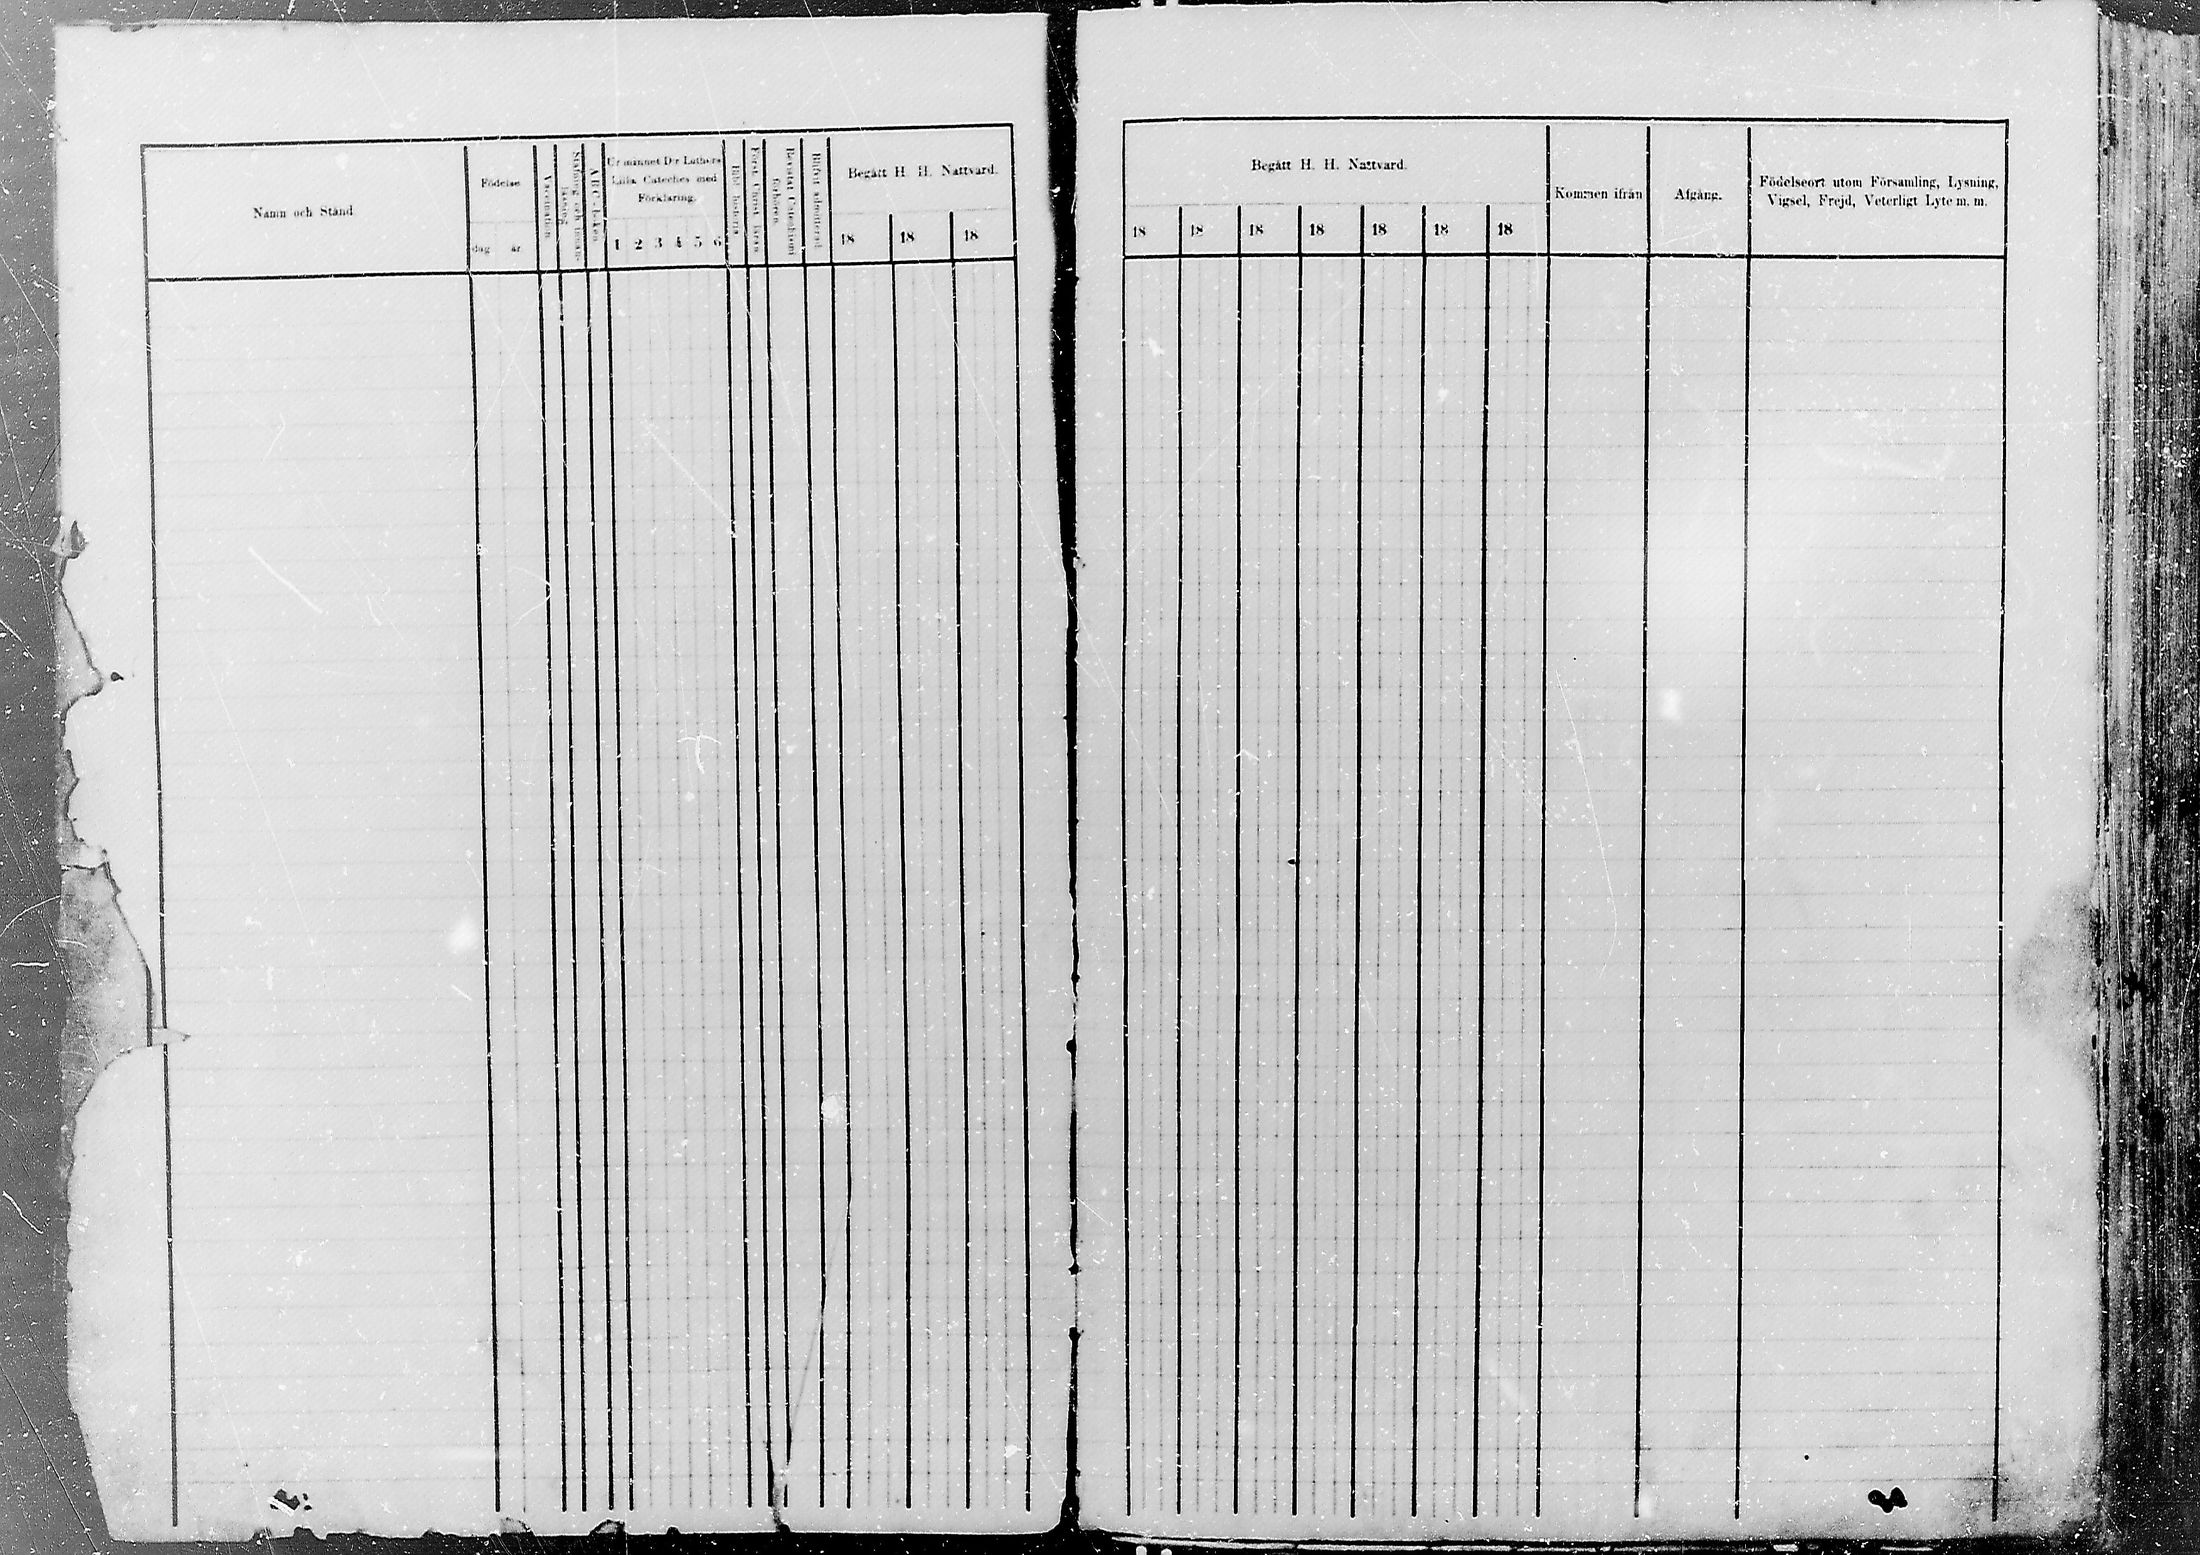 Namn och Stånd
Födelse
dag år
Vaccination
Stafning och innan-
läsning
ABC-boken
Ur minnet D:r Luthers
Lilla Cateches med
Förklaring.
1 2 3 4 5 6
Bibl. historia
Först. Christ. läran
Bevistat Catechismi
förhören.
Blifvit admitterad
Begått H. H. Nattvard.
18 18 18
Begått H. H. Nattvard.
18 18 18 18 18 18 18
Kommen ifrån
Afgång.
Födelseort utom Församling, Lysning,
Vigsel, Frejd, Veterligt Lyte m. m.